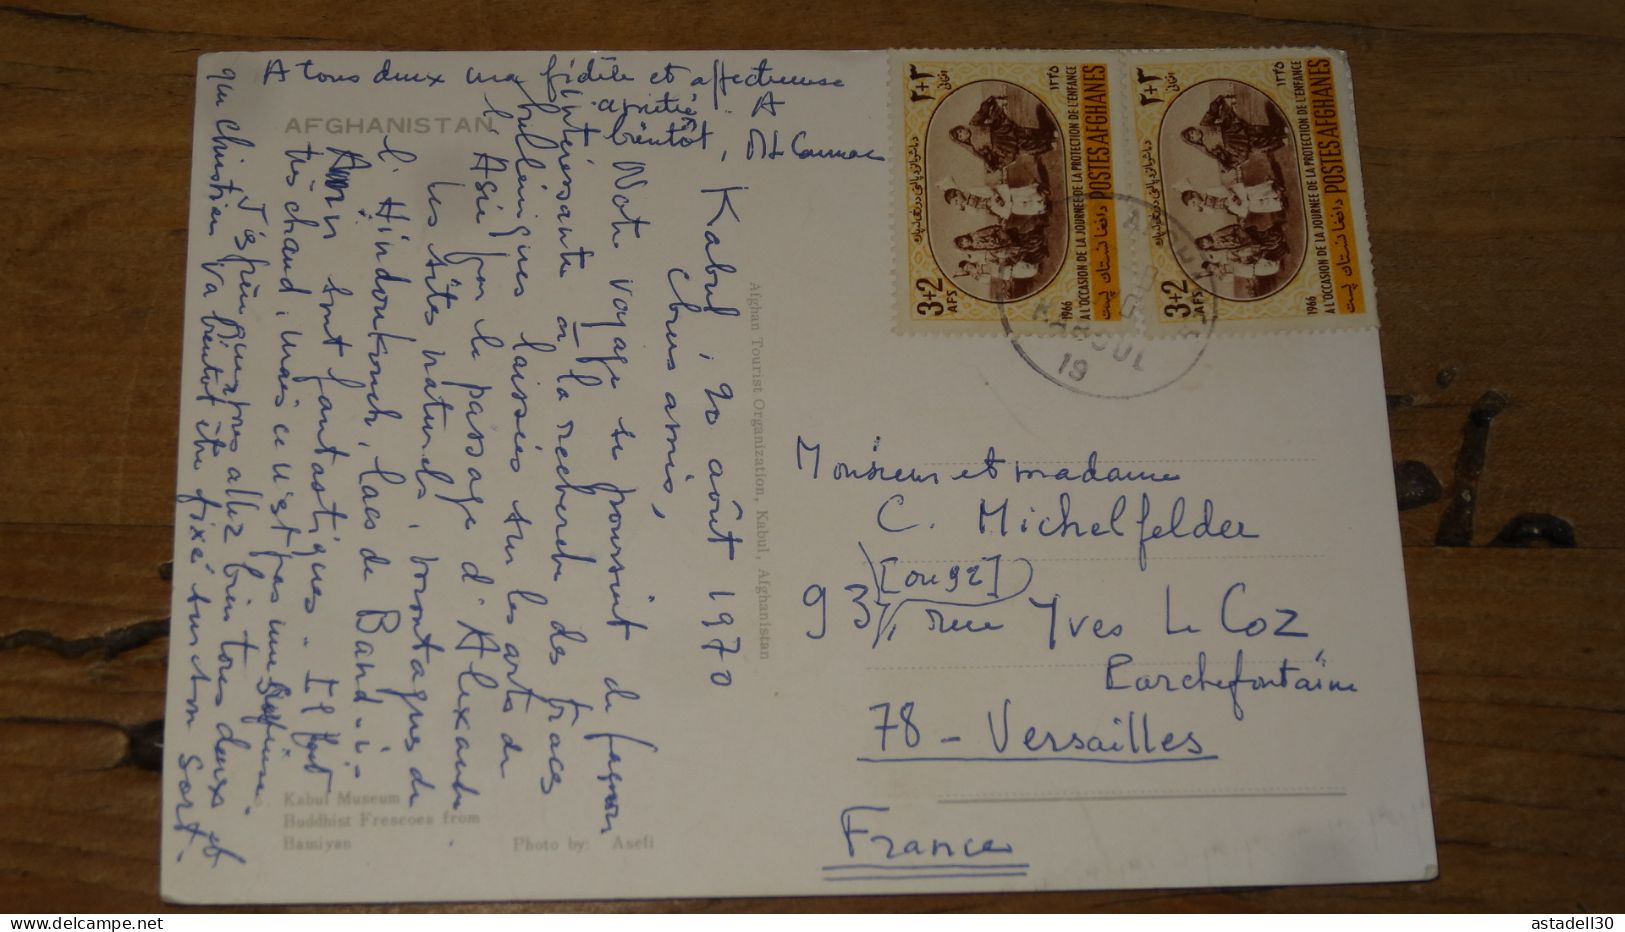 AFGHANISTAN
Kabul, 20 août 1970
Chers amis,
Notre voyage se poursuit de façon
intéressante à la recherche des traces
helléniques laissées sur les arts de
l'Asie par le passage d'Alexandre.
Les sites naturels, montagnes de
l'Hindoukouch, lacs de Band-i-
Amir sont fantastiques. Il fait
très chaud, mais ce n'est pas une
J'espère que vous allez bien tous deux et
que Christian va bientôt être fixé sur son sort.
A tous deux ma fidèle et affectueuse
amitié. A
bientôt,
Kabul Museum
Buddhist Frescoes from
Bamiyan
Photo by: Asefi
Afghan Tourist Organization, Kabul, Afghanistan
۲+۳
افغانی
۱۳۴۵
د افغانستان پست
POSTES AFGHANES
A L'OCCASION DE LA JOURNEE DE LA PROTECTION DE L'ENFANCE
1966
3+2
AFS
۲+۳
افغانی
۱۳۴۵
د افغانستان پست
POSTES AFGHANES
A L'OCCASION DE LA JOURNEE DE LA PROTECTION DE L'ENFANCE
1966
3+2
AFS
19
Monsieur et madame
C. Michelfelder
[ou 92]
93, rue Yves Le Coz
Porchefontaine
78 - Versailles
France
astadell30